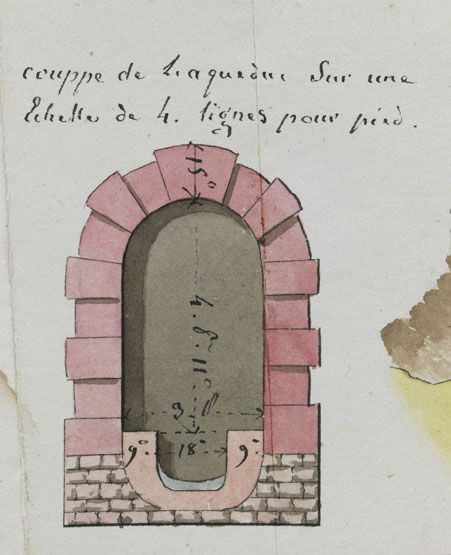 couppe de Laqueduc Sur une
Echelle de 4. lignes pour pied.
15°
4. P. 11°
3 P
9° 18° 9°